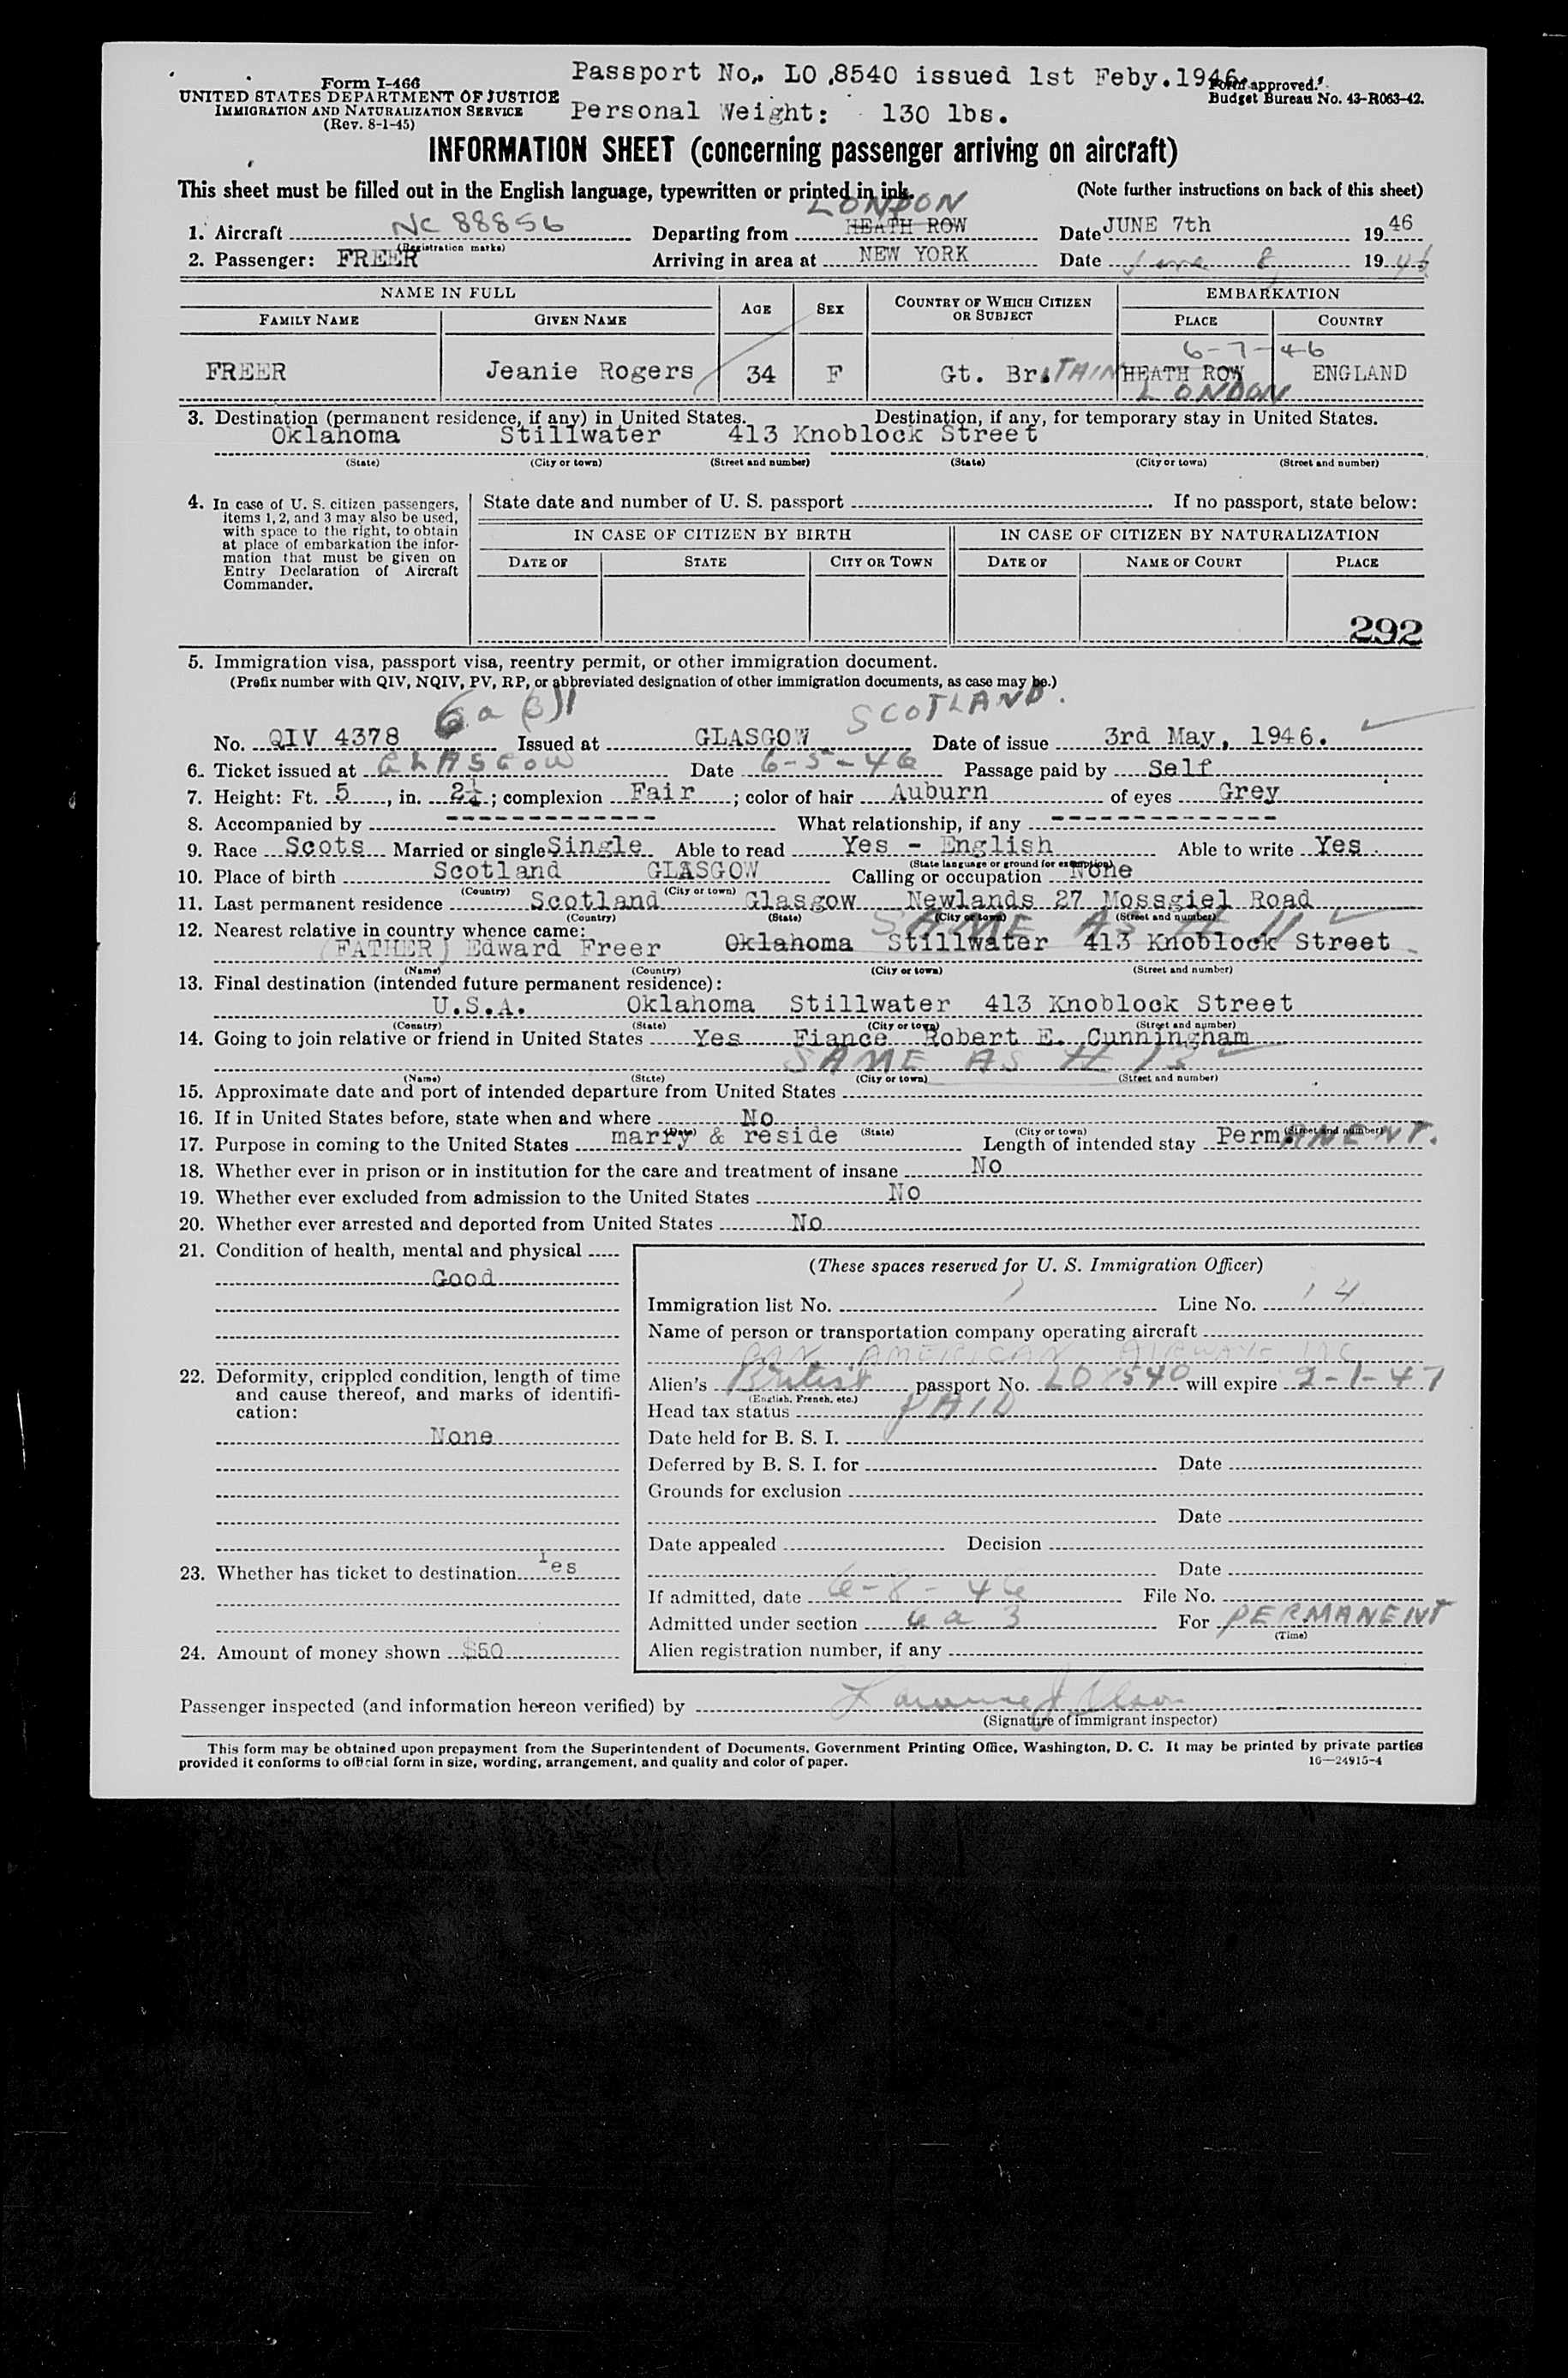 Passport No. LO 8540 issued 1st Feby.1946.
Personal Weight: 130 lbs.
Form I-466
UNITED STATES DEPARTMENT OF JUSTICE
IMMIGRATION AND NATURALIZATION SERVICE
(Rev. 8-1-45)
Form approved.
Budget Bureau No. 43-R063-42.
INFORMATION SHEET (concerning passenger arriving on aircraft)
This sheet must be filled out in the English language, typewritten or printed in ink. (Note further instructions on back of this sheet)
LONDON
1. Aircraft NC 88856 Departing from HEATH ROW Date JUNE 7th 1946
(Registration marks)
2. Passenger: FREER Arriving in area at NEW YORK Date June 8, 1946
NAME IN FULL AGE SEX COUNTRY OF WHICH CITIZEN OR SUBJECT EMBARKATION
FAMILY NAME GIVEN NAME PLACE COUNTRY
6-7-46
FREER Jeanie Rogers 34 F Gt. Br.ITAIN HEATH ROW ENGLAND
LONDON
3. Destination (permanent residence, if any) in United States. Destination, if any, for temporary stay in United States.
Oklahoma Stillwater 413 Knoblock Street
(State) (City or town) (Street and number) (State) (City or town) (Street and number)
4. In case of U. S. citizen passengers,
items 1, 2, and 3 may also be used,
with space to the right, to obtain
at place of embarkation the infor-
mation that must be given on
Entry Declaration of Aircraft
Commander.
State date and number of U. S. passport If no passport, state below:
IN CASE OF CITIZEN BY BIRTH IN CASE OF CITIZEN BY NATURALIZATION
DATE OF STATE CITY OR TOWN DATE OF NAME OF COURT PLACE
292
5. Immigration visa, passport visa, reentry permit, or other immigration document.
(Prefix number with QIV, NQIV, PV, RP, or abbreviated designation of other immigration documents, as case may be.)
6a (3) SCOTLAND.
No. QIV 4378 Issued at GLASGOW Date of issue 3rd May, 1946.
6. Ticket issued at GLASGOW Date 6-5-46 Passage paid by Self
7. Height: Ft. 5, in. 2¼; complexion Fair; color of hair Auburn of eyes Grey
8. Accompanied by ------------- What relationship, if any --------------
9. Race Scots Married or single Single Able to read Yes - English Able to write Yes
(State language or ground for exemption)
10. Place of birth Scotland GLASGOW Calling or occupation None
(Country) (City or town)
11. Last permanent residence Scotland Glasgow Newlands 27 Mossgiel Road
(Country) (State) (City or town) (Street and number)
SAME AS # 11
12. Nearest relative in country whence came:
(FATHER) Edward Freer Oklahoma Stillwater 413 Knoblock Street
(Name) (Country) (City or town) (Street and number)
13. Final destination (intended future permanent residence):
U.S.A. Oklahoma Stillwater 413 Knoblock Street
(Country) (State) (City or town) (Street and number)
14. Going to join relative or friend in United States Yes Fiance Robert E. Cunningham
SAME AS # 13
(Name) (State) (City or town) (Street and number)
15. Approximate date and port of intended departure from United States
16. If in United States before, state when and where No
(Date) (State) (City or town) (Street and number)
17. Purpose in coming to the United States marry & reside Length of intended stay Perm.ANENT.
18. Whether ever in prison or in institution for the care and treatment of insane No
19. Whether ever excluded from admission to the United States No
20. Whether ever arrested and deported from United States No
21. Condition of health, mental and physical
Good
22. Deformity, crippled condition, length of time
and cause thereof, and marks of identifi-
cation:
None
23. Whether has ticket to destination Yes
24. Amount of money shown $50
(These spaces reserved for U. S. Immigration Officer)
Immigration list No. 1 Line No. 14
Name of person or transportation company operating aircraft
PAN AMERICAN AIRWAYS INC
Alien's British passport No. LO 8540 will expire 2-1-47
(English, French, etc.)
Head tax status PAID
Date held for B. S. I.
Deferred by B. S. I. for Date
Grounds for exclusion
Date
Date appealed Decision
Date
If admitted, date 6-8-46 File No.
Admitted under section 6a3 For PERMANENT
(Time)
Alien registration number, if any
Passenger inspected (and information hereon verified) by
(Signature of immigrant inspector)
This form may be obtained upon prepayment from the Superintendent of Documents, Government Printing Office, Washington, D. C. It may be printed by private parties
provided it conforms to official form in size, wording, arrangement, and quality and color of paper. 16—24915-4